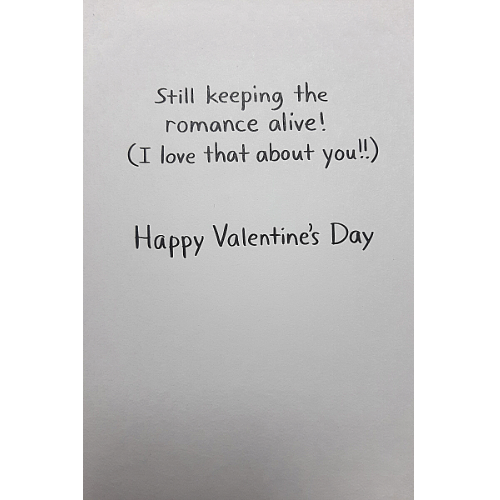 Still keeping the
romance alive!
(I love that about you!!)
Happy Valentine's Day